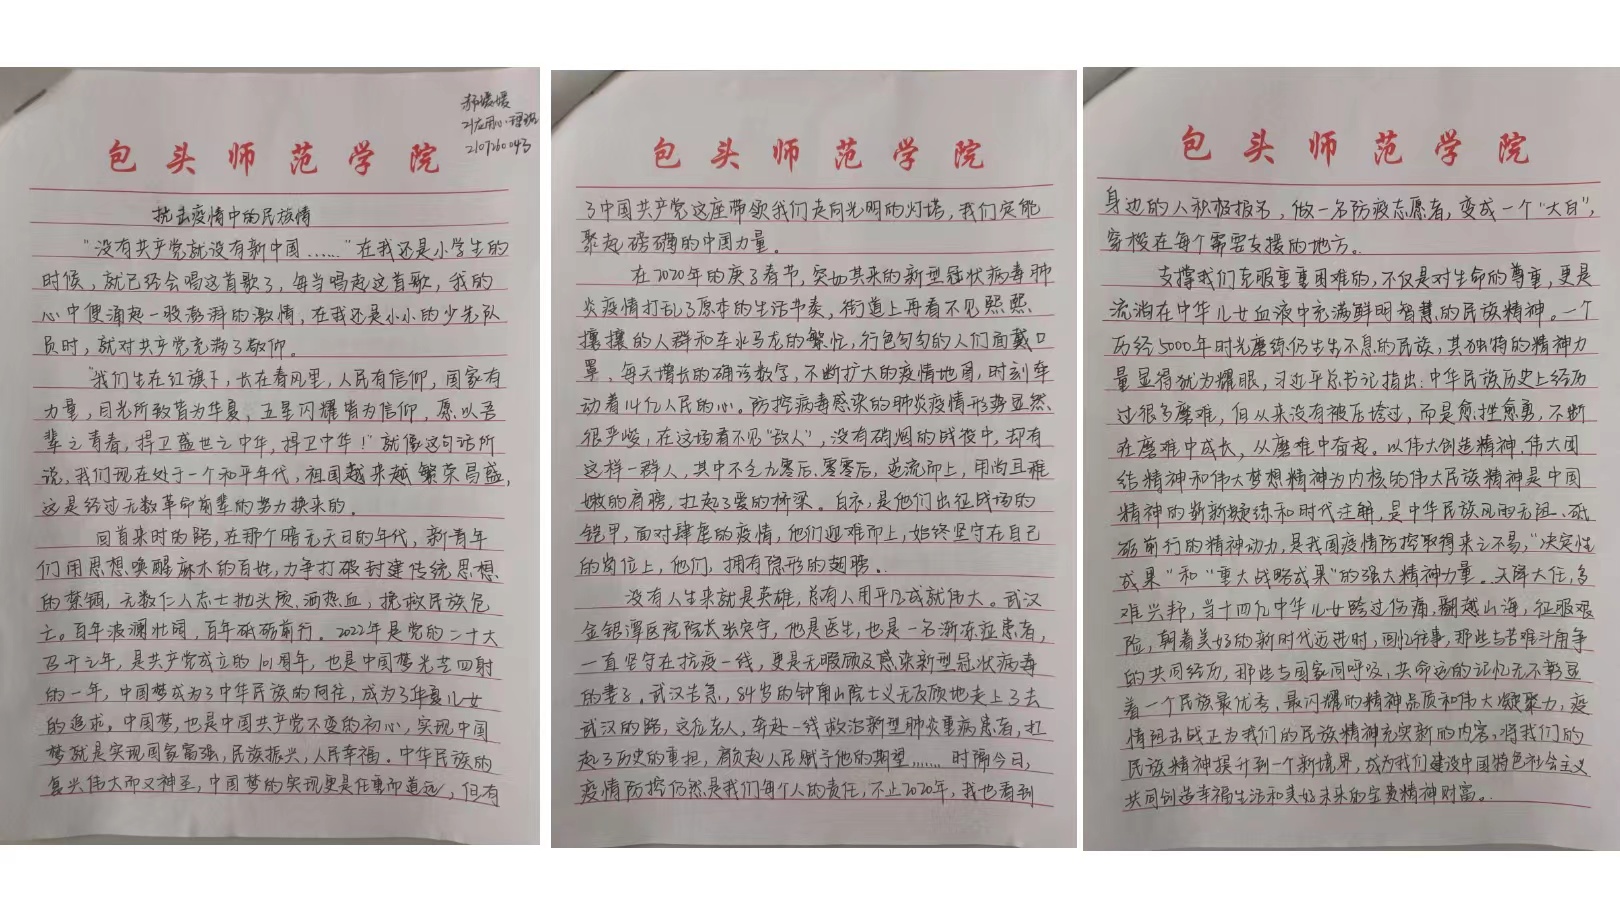 媛媛
21应用心理班
2107260043
包头师范学院
抗击疫情中的民族情
“没有共产党就没有新中国……”在我还是小学生的
时候，就已经会唱这首歌了，每当唱起这首歌，我的
心中便涌起一股澎湃的激情，在我还是小小的少先队
员时，就对共产党充满了敬仰。
“我们生在红旗下，长在春风里，人民有信仰，国家有
力量，目光所致皆为华夏，五星闪耀皆为信仰，愿以吾
辈之青春，捍卫盛世之中华，捍卫中华！”就像这句话所
说，我们现在处于一个和平年代，祖国越来越繁荣昌盛，
这是经过无数革命前辈的努力换来的。
回首来时的路，在那个暗无天日的年代，新青年
们用思想唤醒麻木的百姓，力争打破封建传统思想
的禁锢，无数仁人志士抛头颅、洒热血，挽救民族危
亡。百年波澜壮阔，百年砥砺前行。2022年是党的二十大
召开之年，是共产党成立的101周年，也是中国梦光芒四射
的一年，中国梦成为了中华民族的向往，成为了华夏儿女
的追求。中国梦，也是中国共产党不变的初心，实现中国
梦就是实现国家富强，民族振兴，人民幸福。中华民族的
复兴伟大而又神圣，中国梦的实现更是任重而道远，但有
包头师范学院
了中国共产党这座带领我们走向光明的灯塔，我们定能
聚起磅礴的中国力量。
在2020年的庚子春节，突如其来的新型冠状病毒肺
炎疫情打乱了原本的生活节奏，街道上再看不见熙熙
攘攘的人群和车水马龙的繁忙，行色匆匆的人们面戴口
罩，每天增长的确诊数字，不断扩大的疫情地图，时刻牵
动着14亿人民的心。防控病毒感染的肺炎疫情形势显然
很严峻，在这场看不见“敌人”，没有硝烟的战役中，却有
这样一群人，其中不乏九零后、零零后，逆流而上，用尚且稚
嫩的肩膀，扛起了爱的桥梁。白衣，是他们出征战场的
铠甲，面对肆虐的疫情，他们迎难而上，始终坚守在自己
的岗位上，他们，拥有隐形的翅膀。
没有人生来就是英雄，总有人用平凡成就伟大。武汉
金银潭医院院长张定宇，他是医生，也是一名渐冻症患者，
一直坚守在抗疫一线，更是无暇顾及感染新型冠状病毒
的妻子。武汉告急，84岁的钟南山院士义无反顾地走上了去
武汉的路，这位老人，奔赴一线救治新型肺炎重病患者，扛
起了历史的重担，肩负起人民赋予他的期望……时隔今日，
疫情防控仍然是我们每个人的责任，不止2020年，我也看到
包头师范学院
身边的人积极报名，做一名防疫志愿者，变成一个“大白”，
穿梭在每个需要支援的地方。
支撑我们克服重重困难的，不仅是对生命的尊重，更是
流淌在中华儿女血液中充满鲜明智慧的民族精神。一个
历经5000年时光磨练仍生生不息的民族，其独特的精神力
量显得犹为耀眼，习近平总书记指出：中华民族历史上经历
过很多磨难，但从来没有被压垮过，而是愈挫愈勇，不断
在磨难中成长，从磨难中奋起。以伟大创造精神、伟大团
结精神和伟大梦想精神为内核的伟大民族精神是中国
精神的崭新凝练和时代注解，是中华民族风雨无阻、砥
砺前行的精神动力，是我国疫情防控取得来之不易，“决定性
成果”和“重大战略成果”的强大精神力量。天降大任，多
难兴邦，当十四亿中华儿女跨过伤痛，翻越山海，征服艰
险，朝着美好的新时代迈进时，回忆往事，那些与苦难斗争
的共同经历，那些与国家同呼吸，共命运的记忆无不彰显
着一个民族最优秀、最闪耀的精神品质和伟大凝聚力，疫
情阻击战正为我们的民族精神充实新的内容，将我们的
民族精神提升到一个新境界，成为我们建设中国特色社会主义
共同创造幸福生活和美好未来的宝贵精神财富。